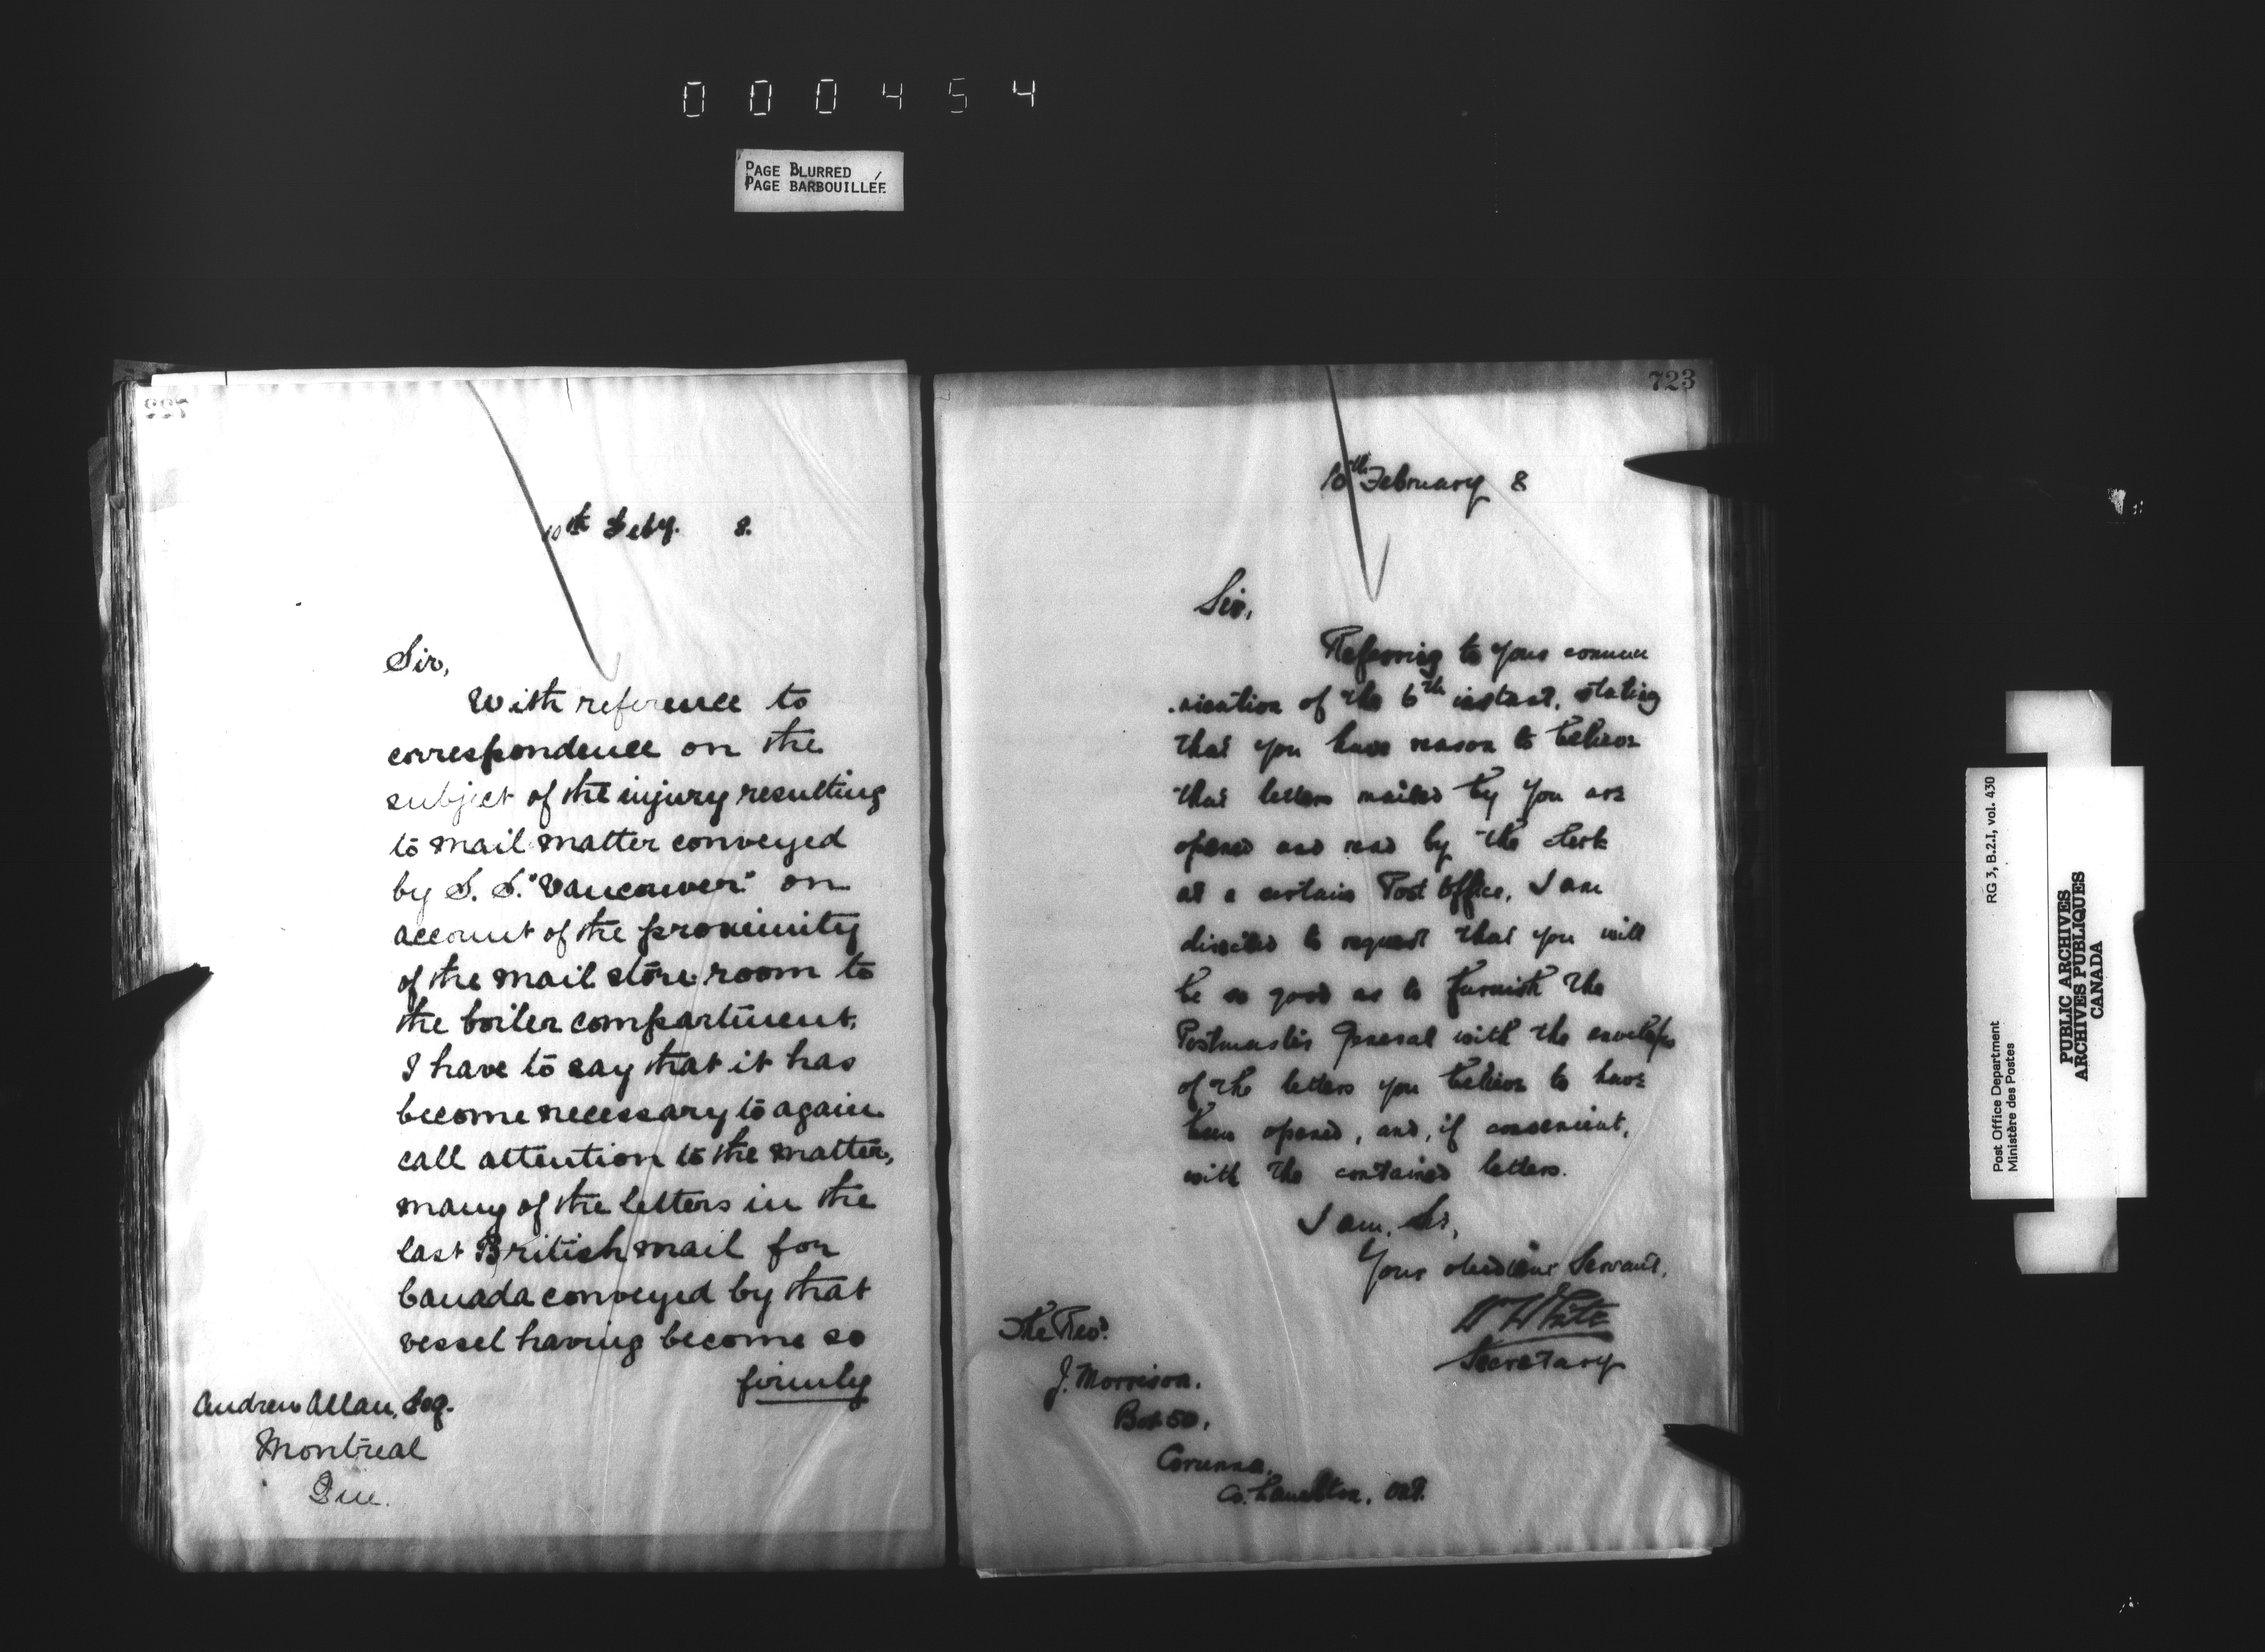 000454
PAGE BLURRED
PAGE BARBOUILLÉE
10th Feby. 8.
Sir,
With reference to
correspondence on the
subject of the injury resulting
to mail matter conveyed
by S. S. "Vancouver" on
account of the proximity
of the mail store room to
the boiler compartment,
I have to say that it has
become necessary to again
call attention to the matter,
many of the letters in the
last British mail for
Canada conveyed by that
vessel having become so
firmly
Andrew Allan, Esq.
Montreal
Que.
723
10th February 8
Sir,
Referring to your commu
-nication of the 6th instant, stating
that you have reason to believe
that letters mailed by you are
opened and read by the clerk
at a certain Post Office, I am
directed to request that you will
be so good as to furnish the
Postmaster General with the envelopes
of the letters you believe to have
been opened, and, if convenient,
with the contained letters.
I am, Sir,
Your obedient Servant,
W White
Secretary
The Revd.
J. Morrison,
Box 50,
Corunna,
Co. Lambton, Ont.
Post Office Department RG 3, B.2.I, vol. 430
Ministère des Postes
PUBLIC ARCHIVES
ARCHIVES PUBLIQUES
CANADA